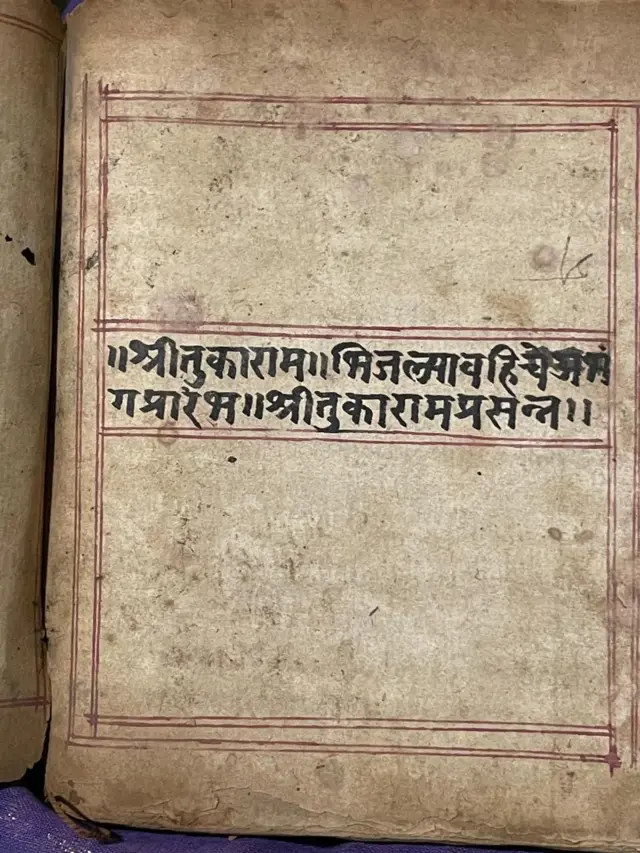 ॥श्रीतुकाराम॥भिजल्यावहिचेअभं
गप्रारंभ॥श्रीतुकारामप्रसन्न॥